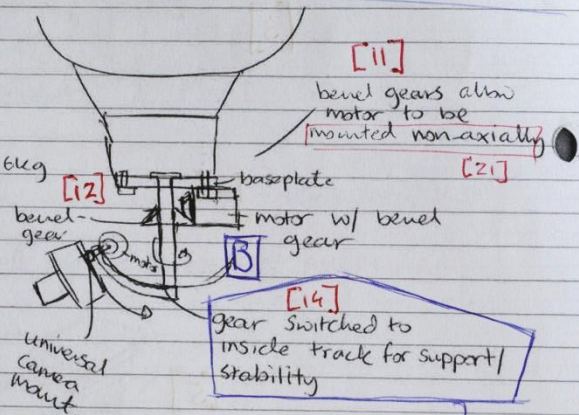 [i1]
bevel gears allow
motor to be
mounted non-axially
[21]
6kg
[12]
baseplate
bevel
gear
motor w/ bevel
gear
motor
B
[14]
gear switched to
inside track for support/
stability
universal
camera
mount